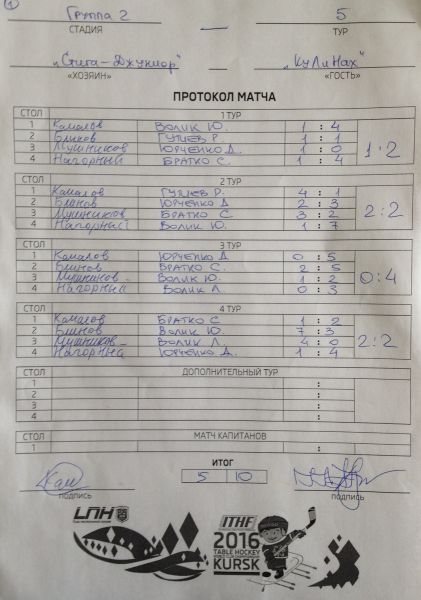 1
Группа 2 — 5
СТАДИЯ ТУР
"Стига-Джуниор" "КуЛиНах"
«ХОЗЯИН» «ГОСТЬ»
ПРОТОКОЛ МАТЧА
СТОЛ 1 ТУР
1 Камалов Волик Ю. 1 : 4
2 Блинов Гуцев Р. 1 : 1
3 Мушников Юрченко Д. 1 : 0
4 Нагорный Братко С. 1 : 4
1:2
СТОЛ 2 ТУР
1 Камалов Гуцев Р. 4 : 1
2 Блинов Юрченко Д 2 : 3
3 Мушников Братко С 3 : 2
4 Нагорный Волик Ю. 1 : 7
2:2
СТОЛ 3 ТУР
1 Камалов Юрченко Д 0 : 5
2 Блинов Братко С. 2 : 5
3 Мушников Волик Ю. 1 : 2
4 Нагорный Волик Л. 0 : 3
0:4
СТОЛ 4 ТУР
1 Камалов Братко С 1 : 2
2 Блинов Волик Ю. 7 : 3
3 Мушников Волик Л. 4 : 0
4 Нагорный Юрченко Д. 1 : 4
2:2
СТОЛ ДОПОЛНИТЕЛЬНЫЙ ТУР
1 :
2 :
3 :
4 :
СТОЛ МАТЧ КАПИТАНОВ
1 :
ИТОГ
5 10
подпись подпись
ЛНХ
ITHF
2016
TABLE HOCKEY
WORLD CLUB CHAMPIONSHIPS
KURSK